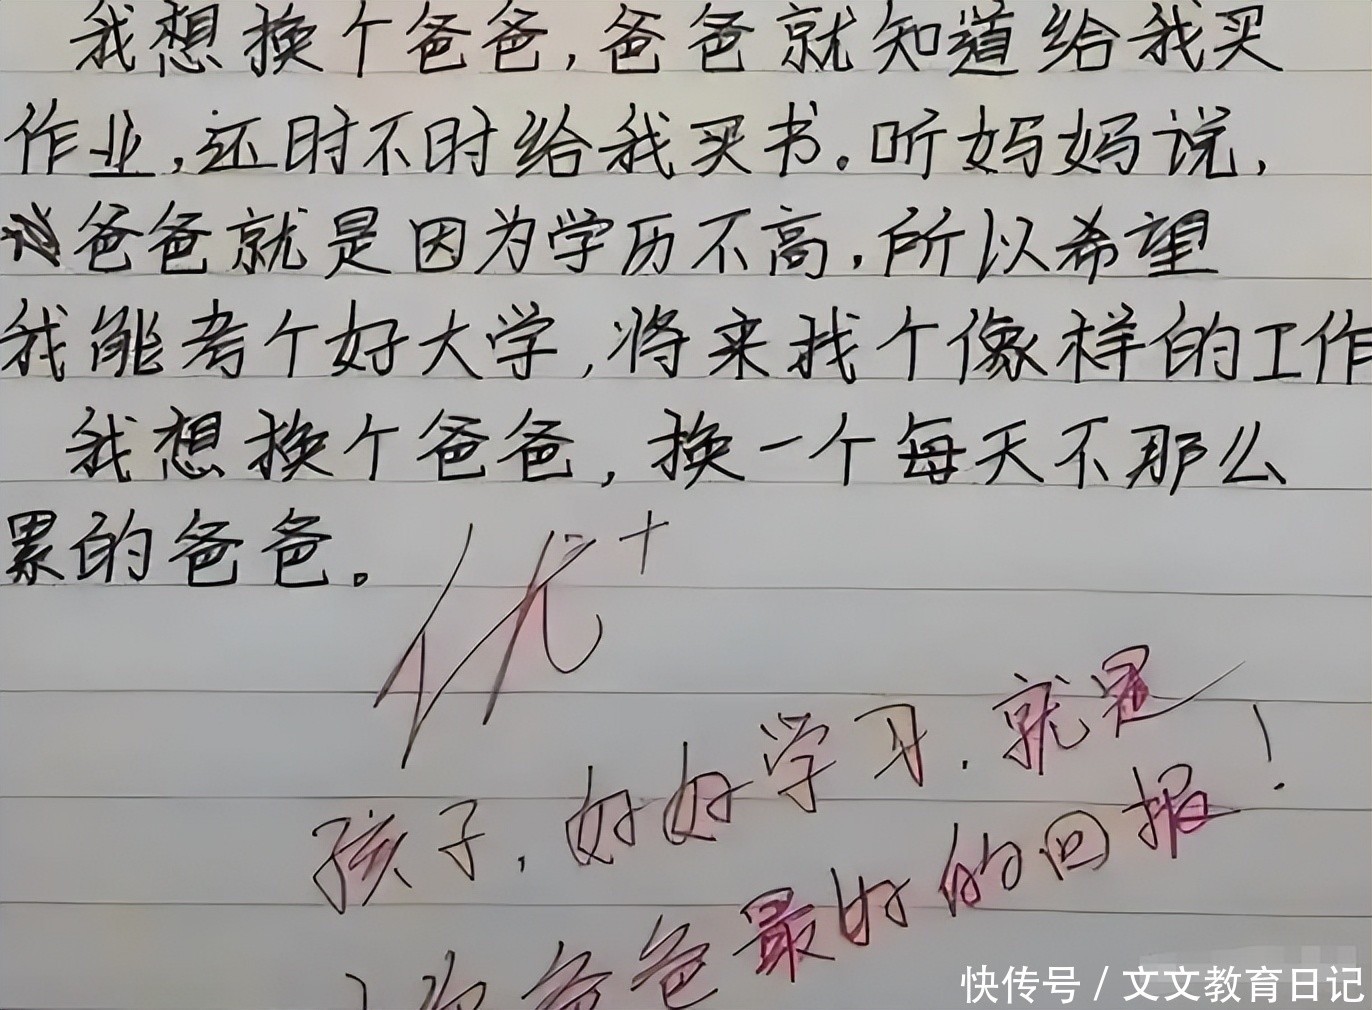 我想换个爸爸,爸爸就知道给我买
作业,还时不时给我买书。听妈妈说,
爸爸就是因为学历不高,所以希望
我能考个好大学,将来找个像样的工作
我想换个爸爸,换一个每天不那么
累的爸爸。
优+
孩子,好好学习.就是
爸爸最好的回报!
快传号/文文教育日记